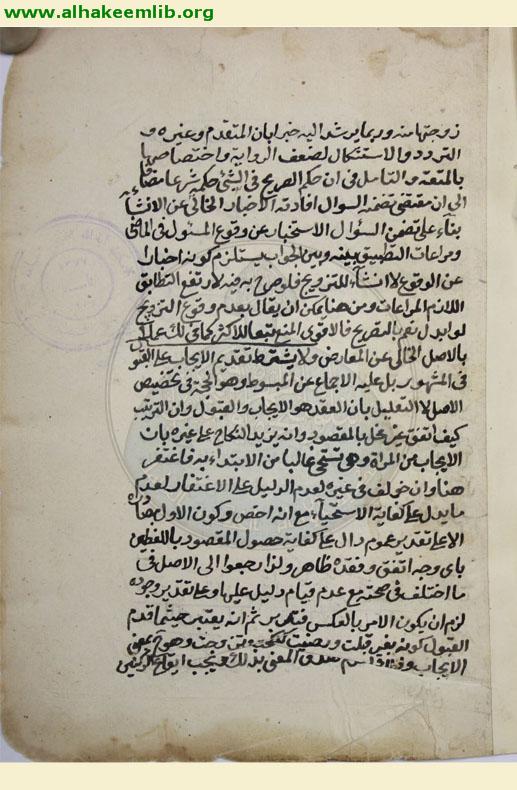 www.alhakeemlib.org
زوجتها منه وربما يرشد اليه خبر ابان المتقدم وغيره و
التردد والاستشكال لضعف الرواية واختصاصها
بالمتعة والتامل في ان حكم الصريح في الشئ حكمه شرعا مضافا
الى ان مقتضى تضمنه السوال افادته الاخبار الخالي عن الانشاء
بناء على تضمن السؤال الاستخبار عن وقوع المسئول في الماضي
ومراعات التطبيق بينه وبين الجواب يستلزم كونه اخبارا
عن الوقوع لا انشاء للتزويج فلو صرح به فيه لارتفع التطابق
اللازم المراعات ومن هنا يمكن ان يقال بعدم وقوع التزويج
لو ابدل نعم بالصريح فالاقوى المنع تبعا للاكثر كما قيل عملا
بالاصل الخالي عن المعارض ولا يشترط تقديم الايجاب على القبول
في المشهور بل عليه الاجماع عن المبسوط وهو الحجة في تخصيص
الاصل لا التعليل بان العقد هو الايجاب والقبول وان الترتيب
كيف اتفق غير مخل بالمقصود وانه يزيد النكاح على غيره بان
الايجاب من المراة وهي تستحي غالبا من الابتداء به فاغتفر
هنا وان خولف في غيره لعدم الدليل على الاغتفار لعدم
ما يدل على كفاية الاستحياء مع انه اخص وكون الاول مصادرة
الا على تقدير عموم دال على كفاية حصول المقصود باللفظين
باي وجه اتفق وفقده ظاهر ولذا رجعوا الى الاصل في
ما اختلف في صحته مع عدم قيام دليل عليها وعلى تقدير وجوده
لزم ان يكون الامر بالعكس فتدبر ثم انه يعتبر حيثما قدم
القبول كونه بغير قبلت ورضيت كنكحت وتزوجت وهو بمعنى
الايجاب